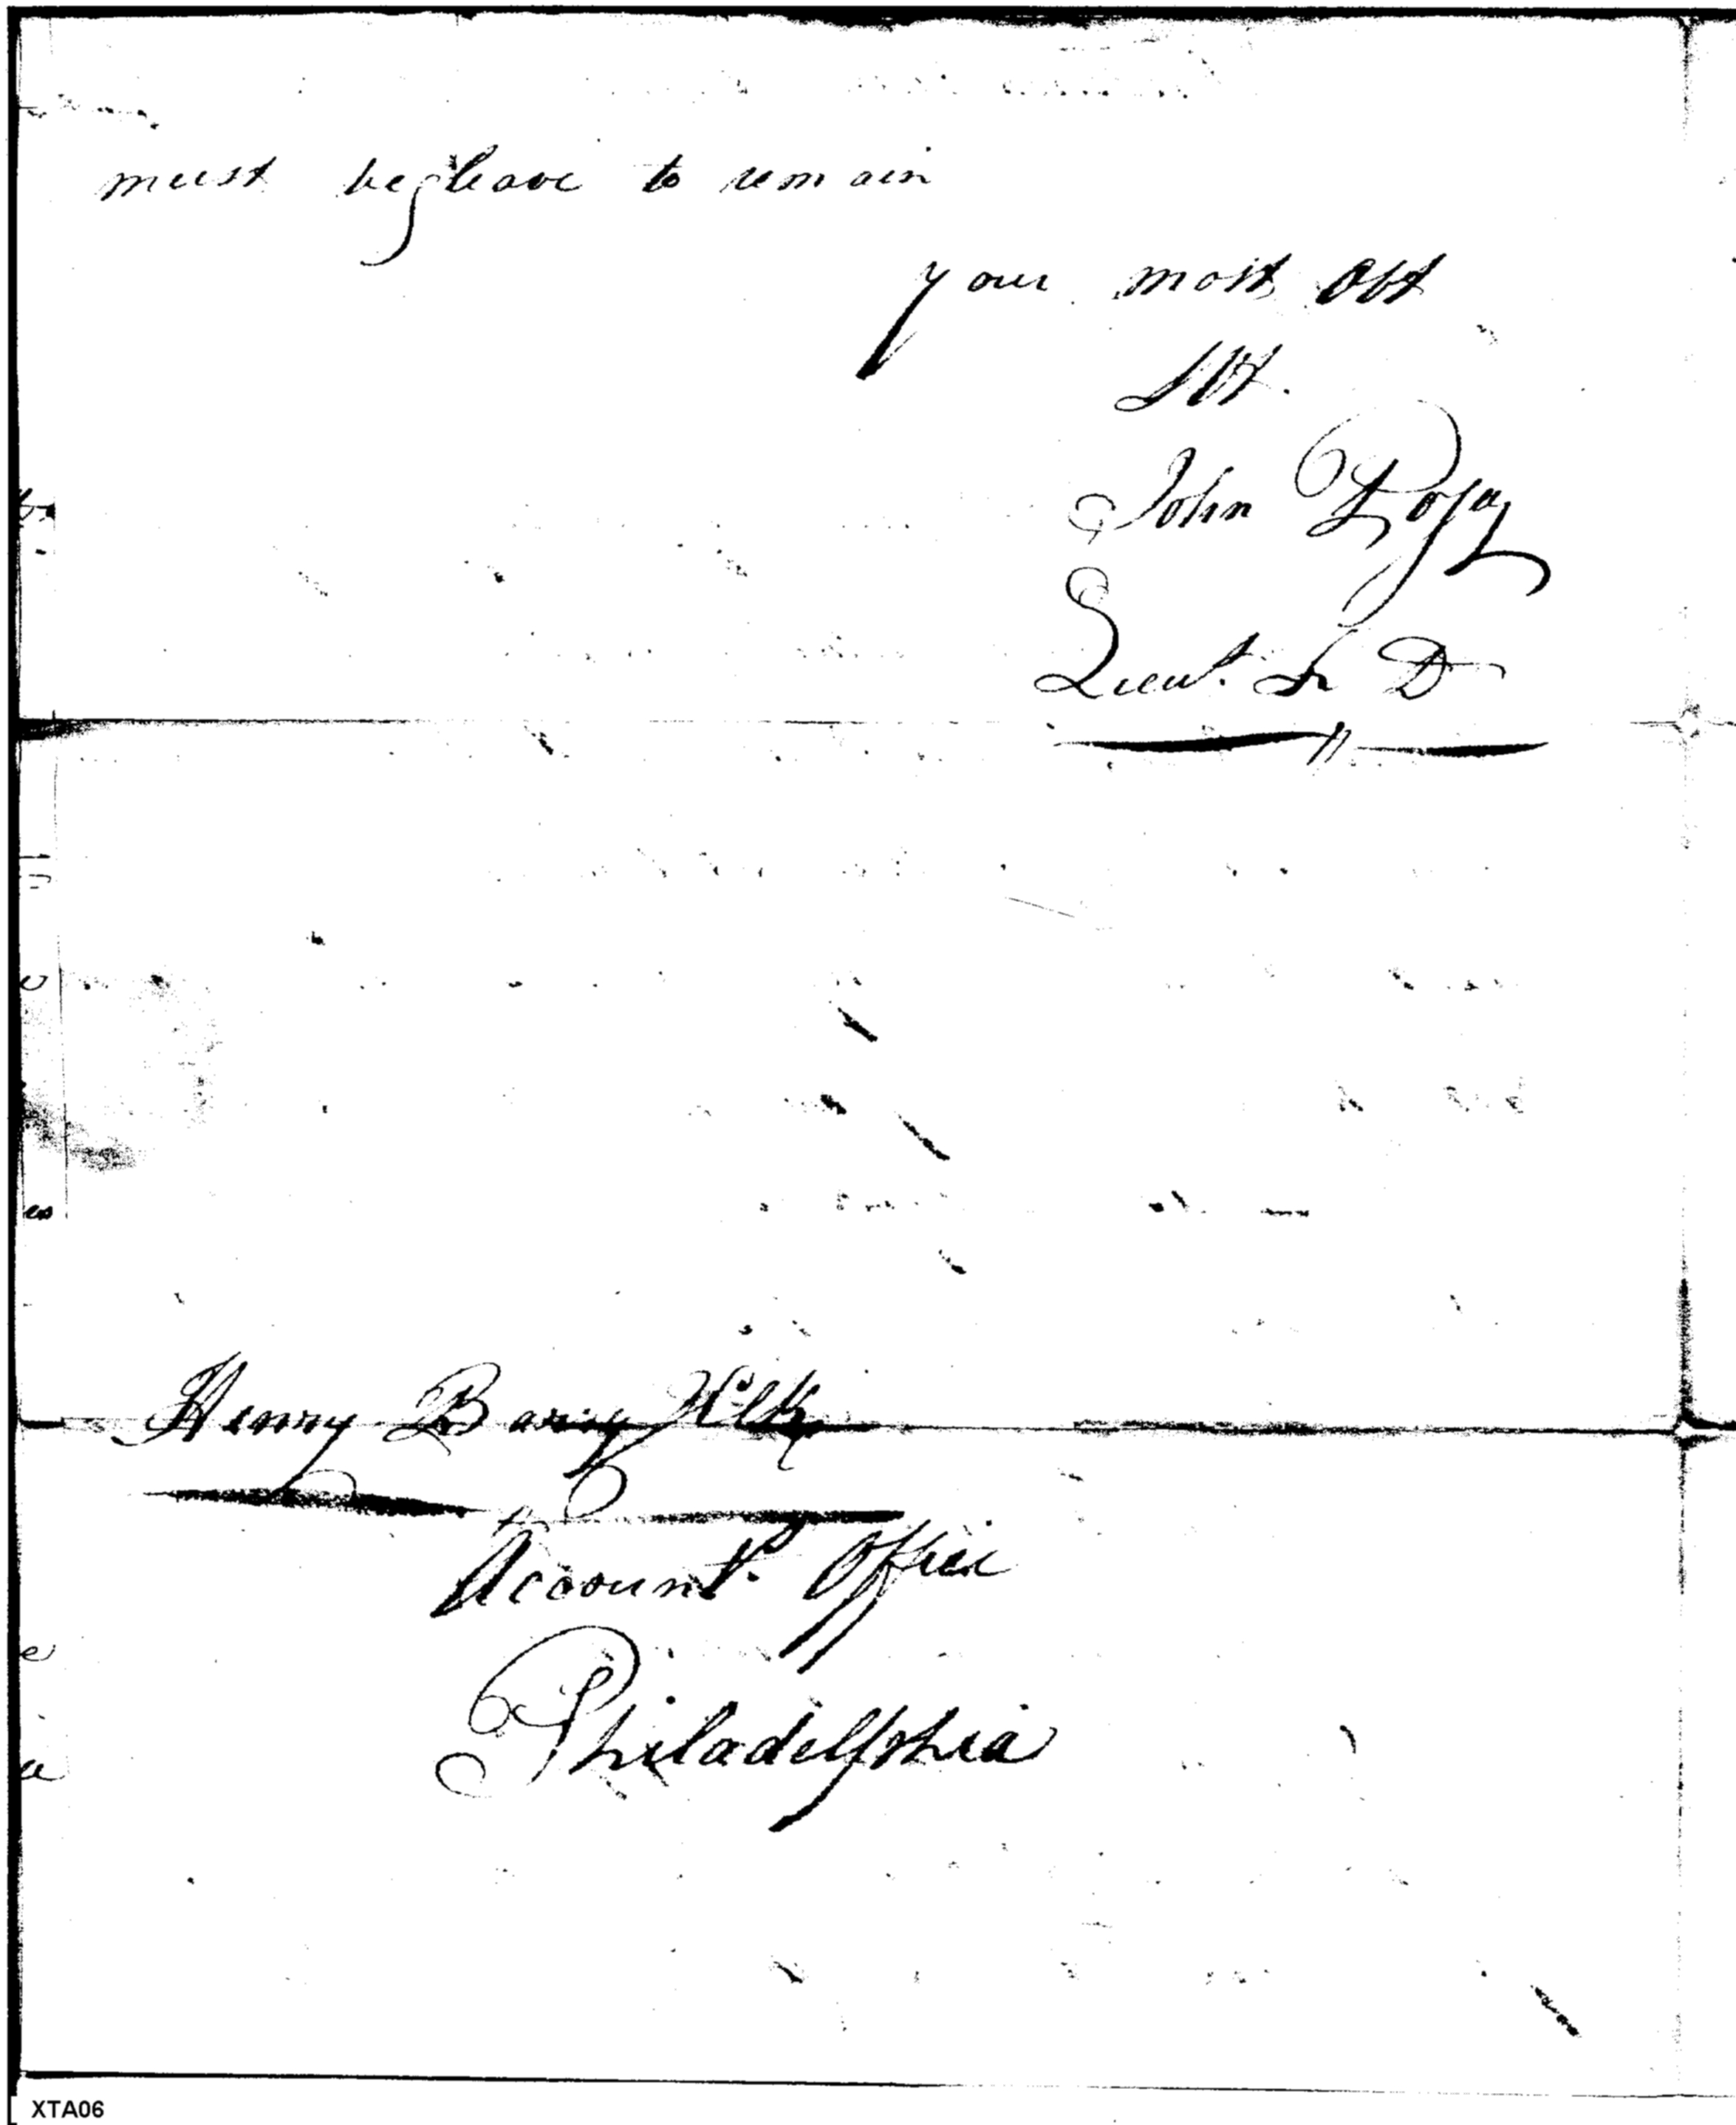 must beg leave to remain
your most Obt
Sevt.
John
Lieut. D
Henry
Account. Office
Philadelphia
XTA06